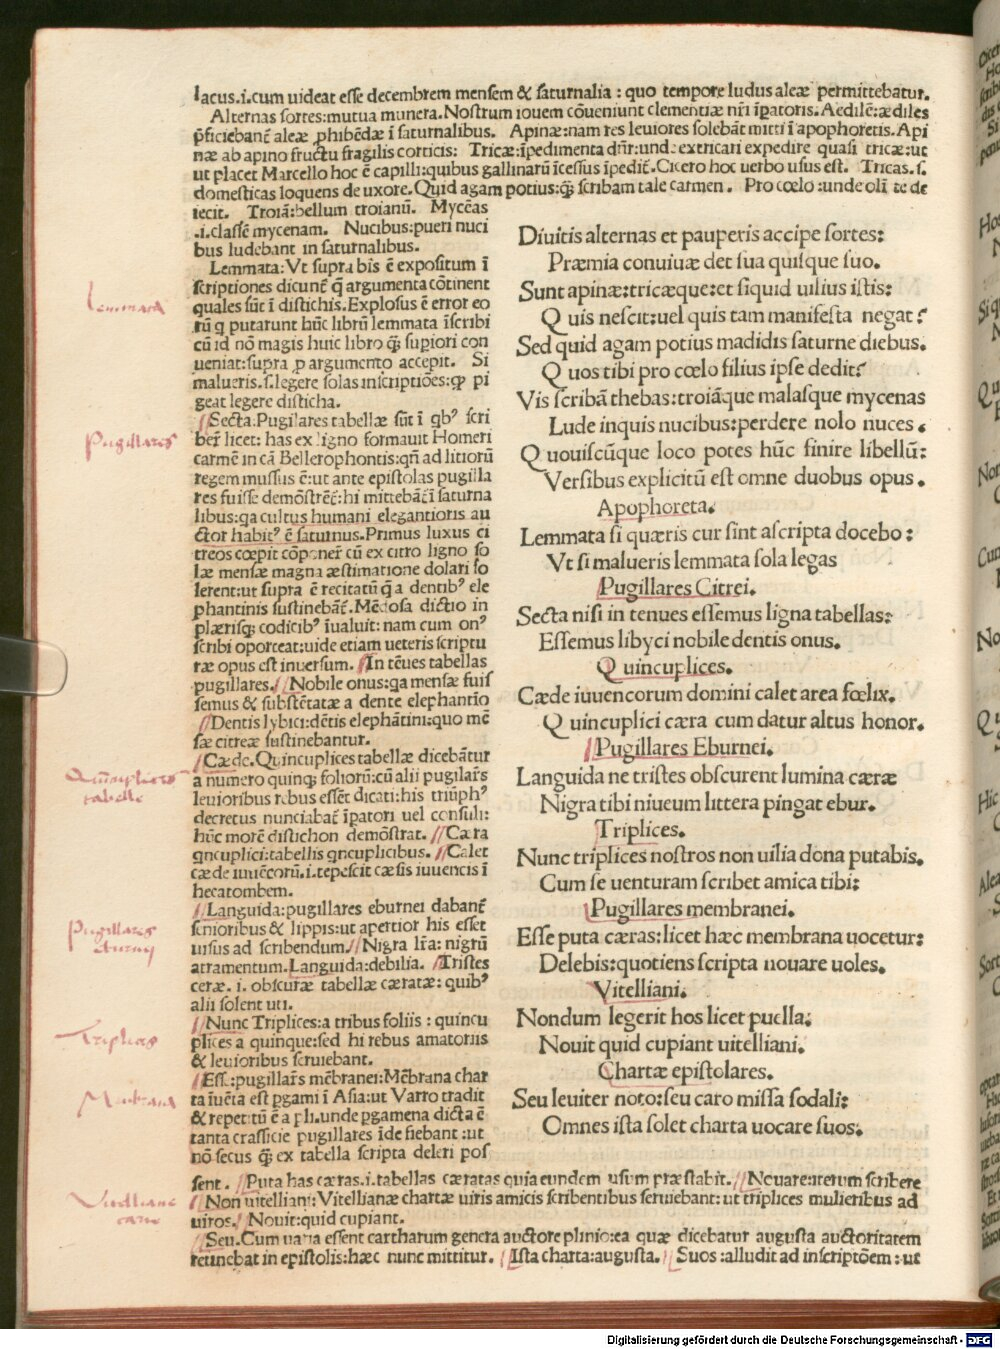 lacus.i.cum uideat esse decembrem mensem & saturnalia : quo tempore ludus aleæ permittebatur.
Alternas sortes:mutua munera.Nostrum iouem cōueniunt clementiæ nr̄i īpatoris.Aedilē:ædiles
ꝓficiebant̄ aleæ ꝓhibēdæ ī saturnalibus. Apinæ:nam res leuiores solebāt mitti ī apophoretis.Api
næ ab apino fructu fragilis corticis: Tricæ:īpedimenta dn̄r:und: extricari expedire quasi tricæ:ut
ut placet Marcello hoc ē capilli:quibus gallinarū īcessus īpedit̄.Cicero hoc uerbo usus est. Tricas.s.
domesticas loquens de uxore.Quid agam potius:q̄ꝫ scribam tale carmen. Pro cœlo :unde oli te de
iecit. Troiā:bellum troianū. Mycēas
.i.classē mycenam. Nucibus:pueri nuci
bus ludebant in saturnalibus.
Lemmata:Vt supra bis ē expositum ī
scriptiones dicunt̄ q̄ argumenta cōtinent
quales sūt ī distichis.Explosus ē error eo
rū q putarunt hūc librū lemmata īscribi
cū id nō magis huic libro q̄ꝫ supiori con
ueniat:supra ꝓ argumento accepit. Si
malueris.s.legere solas inscriptiōes:qꝫ pi
geat legere disticha.
Secta:Pugilares tabellæ sūt ī qbꝰ scri
ber̄ licet: has ex ligno formauit Homeri
carmē in cā Bellerophontis:qn̄ ad litiorū
regem mussus ē:ut ante epistolas pugilla
res fuisse demōstrēt̄:hi mittebāt̄ ī saturna
libus:qa cultus humani elegantioris au
ctor habitꝰ ē saturnus.Primus luxus ci
treos cœpit cōponer̄ cū ex citro ligno so
læ mensæ magna æstimatione dolari so
lerent:ut supra ē recitatū q a dentibꝰ ele
phantinis sustinebāt̄. Mēdosa dictio in
plærisqꝫ codicibꝰ īualuit: nam cum onꝰ
scribi oporteat:uide etiam ueteris scriptu
ræ opus est inuersum. In tēues tabellas
pugillares. Nobile onus:qa mensæ fuis
semus & substētatæ a dente elephantio
Dentis lybici:dētis elephātini:quo mē
sæ citreæ sustinebantur.
Cæde. Quincuplices tabellæ dicebātur
a numero quinqꝫ foliorū:cū alii pugilar̄s
leuioribus rebus essēt dicati:his triūphꝰ
decretus nunciabat̄ īpatori uel consuli:
hūc morē distichon demōstrat. Cæra
qncuplici:tabellis qncuplicibus. Calet
cæde iuuēcorū.i.tepescit cæsis iuuencis ī
hecatombem.
Languida:pugillares eburnei dabant̄
senioribus & lippis:ut apertior his esset
uisus ad scribendum. Nigra lr̄a: nigrū
atramentum. Languida:debilia. Tristes
ceræ. i. obscuræ tabellæ cæratæ: quibꝰ
alii solent uti.
Nunc Triplices:a tribus foliis : quincu
plices a quinque:sed hi rebus amatoriis
& leuioribus seruiebant.
Esse:pugillar̄s mēbranei:Mēbrana char
ta iuēta est pgami ī Asia:ut Varro tradit
& repetitū ē a pli.unde pgamena dicta ē
tanta crassicie pugillares īde fiebant :ut
nō secus q̄ꝫ ex tabella scripta deleri pos
sent. Puta has cæras.i.tabellas cæratas quia eundem usum præstabit. Nouare:iterum scribere
Non uitelliani:Vitellianæ chartæ uiris amicis scribentibus seruiebant: ut triplices mulieribus ad
uiros. Nouit:quid cupiant.
Seu.Cum uaria essent cartharum genera auctore plinio:ea quæ dicebatur augusta auctoritatem
retinebat in epistolis:hæc nunc mittitur. Ista charta:augusta. Suos :alludit ad inscriptōem :ut
Diuitis alternas et pauperis accipe sortes:
Præmia conuiuæ det sua quisque suo.
Sunt apinæ:tricæque:et siquid uilius istis:
Quis nescit:uel quis tam manifesta negat?
Sed quid agam potius madidis saturne diebus.
Quos tibi pro cœlo filius ipse dedit?
Vis scribā thebas:troiāque malasque mycenas
Lude inquis nucibus:perdere nolo nuces.
Quouiscūque loco potes hūc finire libellū:
Versibus explicitū est omne duobus opus.
Apophoreta.
Lemmata si quæris cur sint ascripta docebo:
Vt si malueris lemmata sola legas
Pugillares Citrei.
Secta nisi in tenues essemus ligna tabellas:
Essemus libyci nobile dentis onus.
Quincuplices.
Cæde iuuencorum domini calet area fœlix.
Quincuplici cæra cum datur altus honor.
Pugillares Eburnei.
Languida ne tristes obscurent lumina cæræ
Nigra tibi niueum littera pingat ebur.
Triplices.
Nunc triplices nostros non uilia dona putabis.
Cum se uenturam scribet amica tibi:
Pugillares membranei.
Esse puta cæras:licet hæc membrana uocetur:
Delebis:quotiens scripta nouare uoles.
Vitelliani.
Nondum legerit hos licet puella:
Nouit quid cupiant uitelliani.
Chartæ epistolares.
Seu leuiter noto:seu caro missa sodali:
Omnes ista solet charta uocare suos.
lemmata
pugillares
Quincuplices
tabelle
Pugillares
eburnij
Triplices
Membrana
Vitelliane
carte
Digitalisierung gefördert durch die Deutsche Forschungsgemeinschaft - DFG